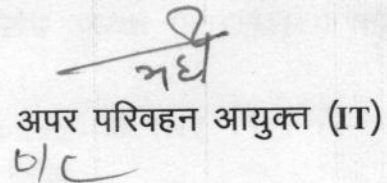 अपर परिवहन आयुक्त (IT)
o/c